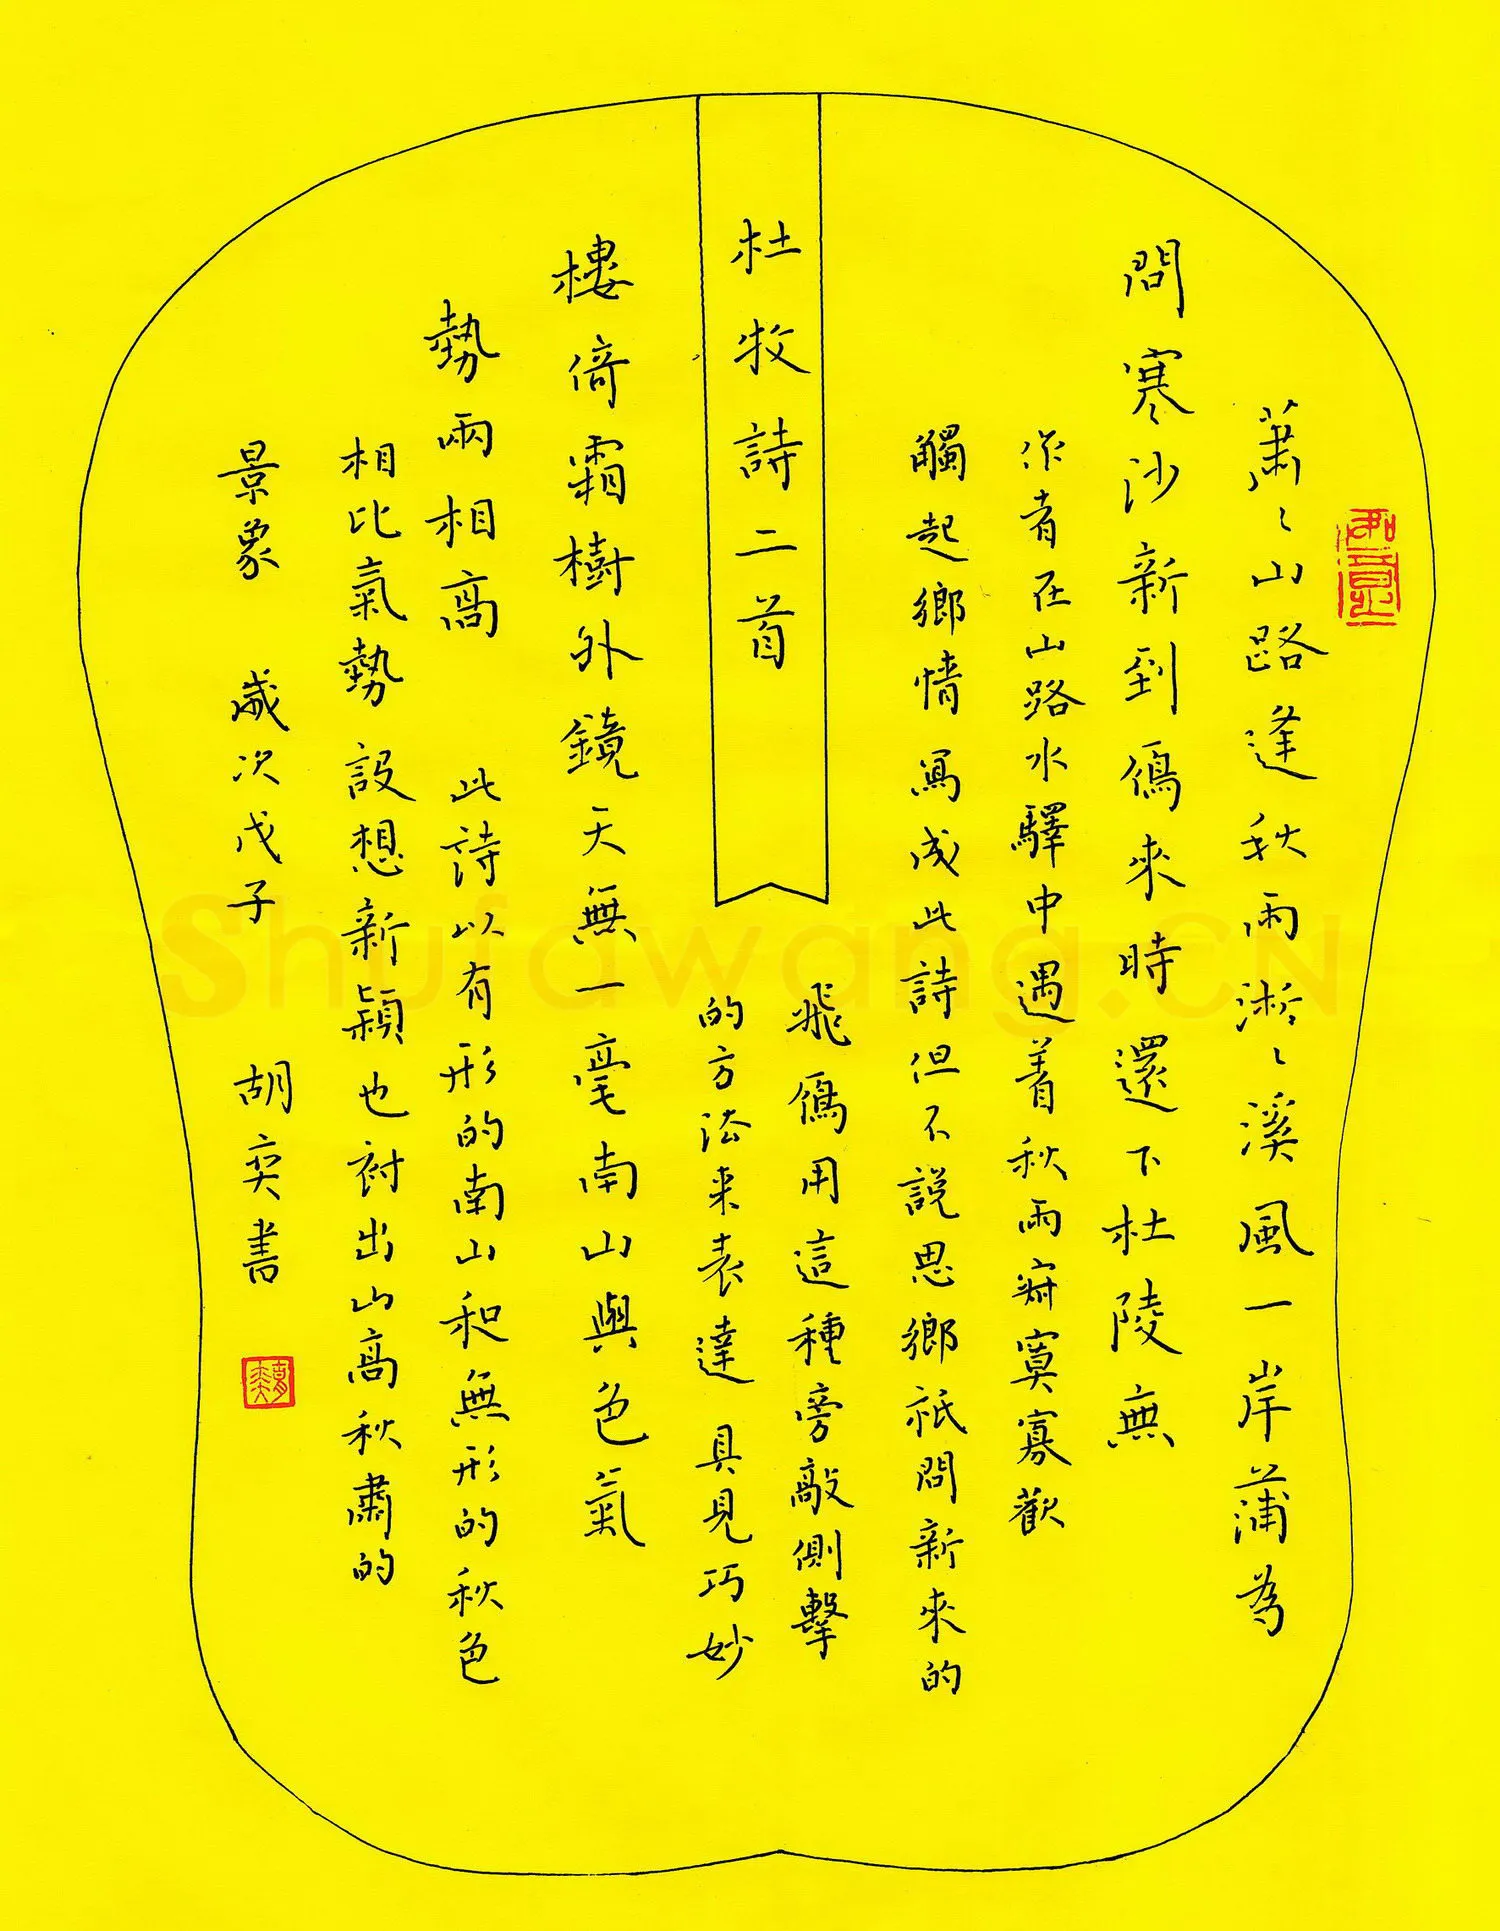 如意
蕭〻山路逢秋雨淅〻溪風一岸蒲為
問寒沙新到鴈來時還下杜陵無
作者在山路水驛中遇着秋雨寂寞寡歡
觸起鄉情寫成此詩但不說思鄉祇問新來的
飛鴈用這種旁敲側擊
的方法来表達 具見巧妙
杜牧詩二首
樓倚霜樹外鏡天無一毫南山與色氣
勢兩相高 此詩以有形的南山和無形的秋色
相比氣勢設想新穎也襯出山高秋肅的
景象 歲次戊子 胡奕書
Shufawang.CN